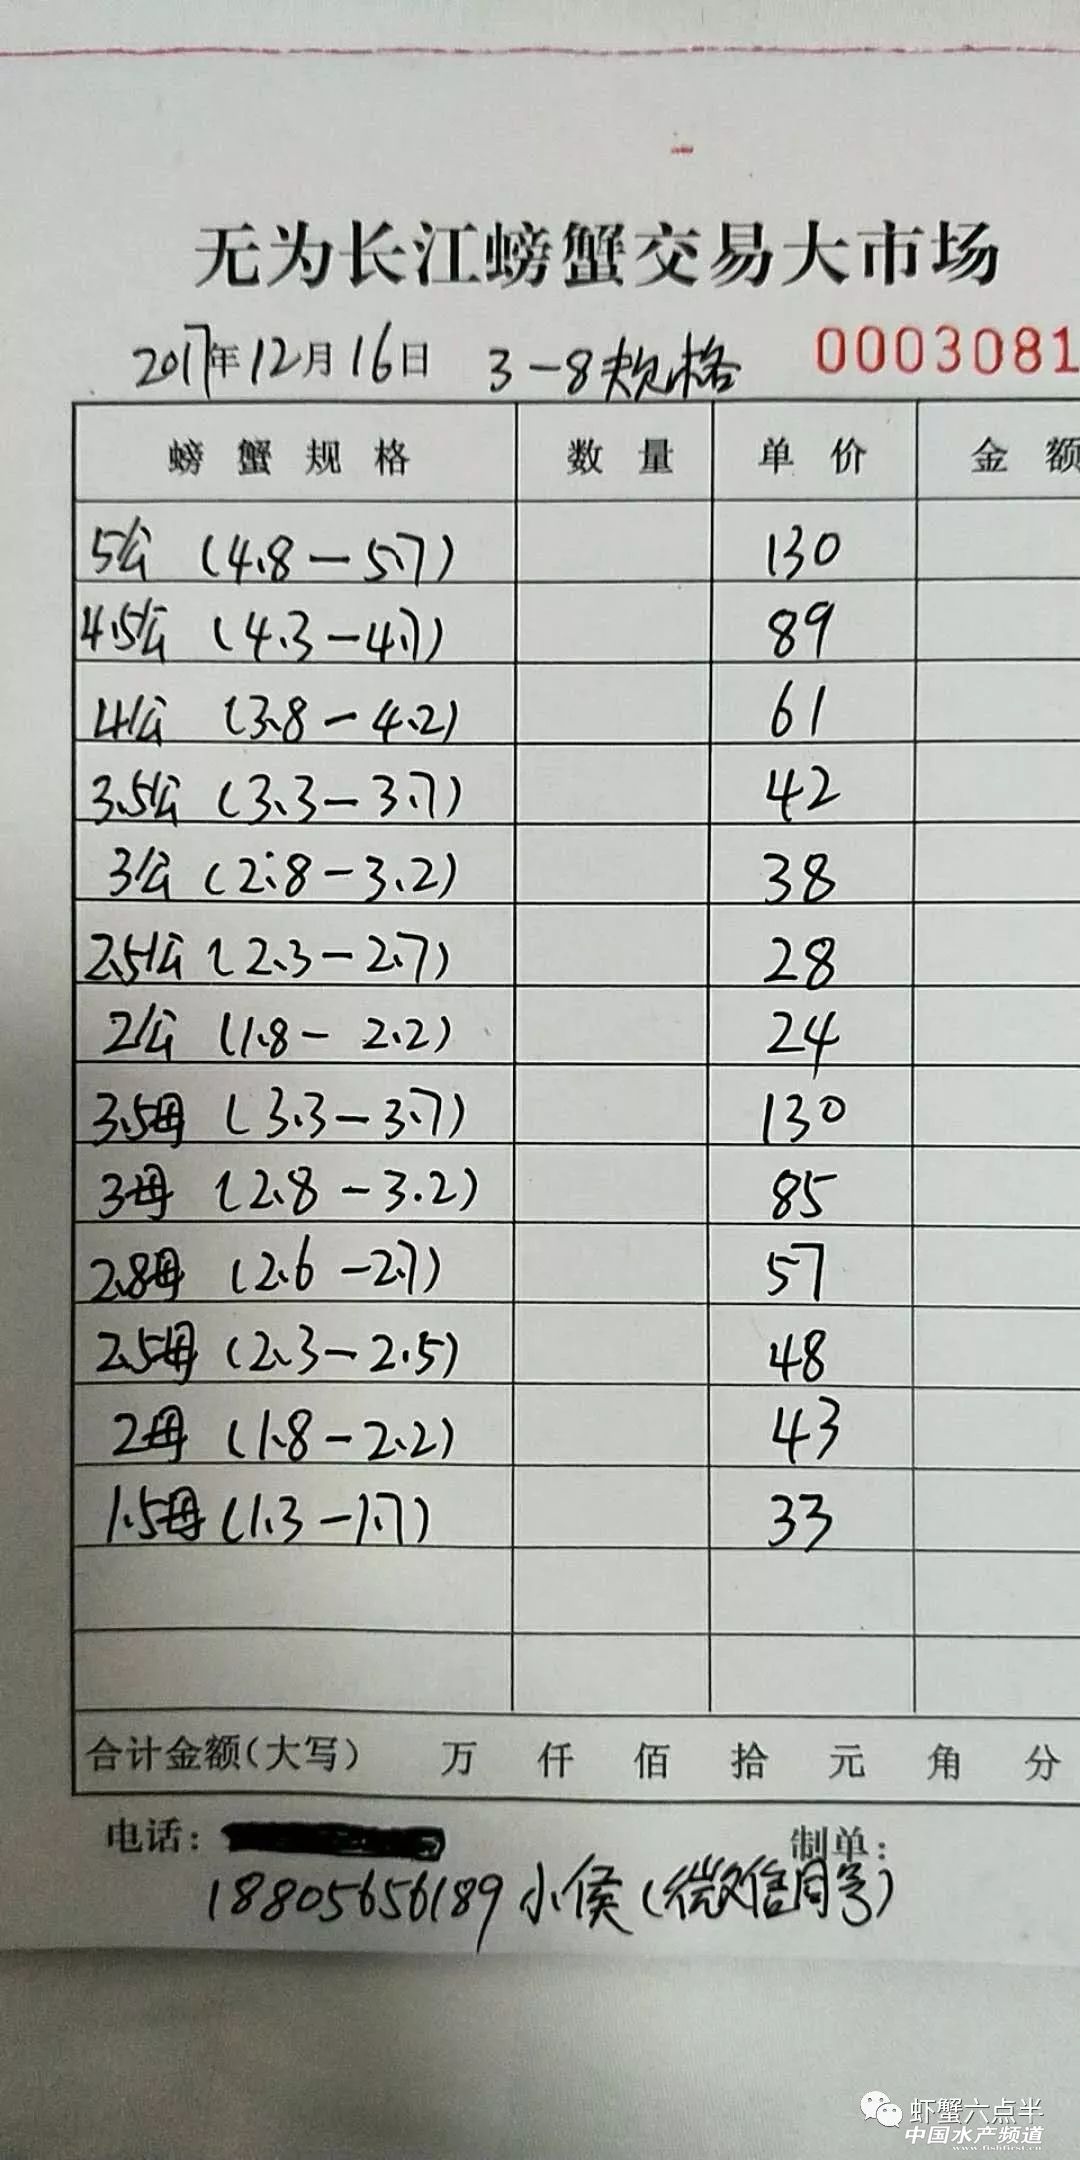 无为长江螃蟹交易大市场
2017年12月16日 3-8规格 0003081
螃蟹规格 数量 单价 金额
5公 (4.8-5.7) 130
4.5公 (4.3-4.7) 89
4公 (3.8-4.2) 61
3.5公 (3.3-3.7) 42
3公 (2.8-3.2) 38
2.5公 (2.3-2.7) 28
2公 (1.8-2.2) 24
3.5母 (3.3-3.7) 130
3母 (2.8-3.2) 85
2.8母 (2.6-2.7) 57
2.5母 (2.3-2.5) 48
2母 (1.8-2.2) 43
1.5母 (1.3-1.7) 33
合计金额(大写) 万 仟 佰 拾 元 角 分
电话: 制单:
18805656189 小侯(微信同号)
虾蟹六点半
中国水产频道
www.fishfirst.cn